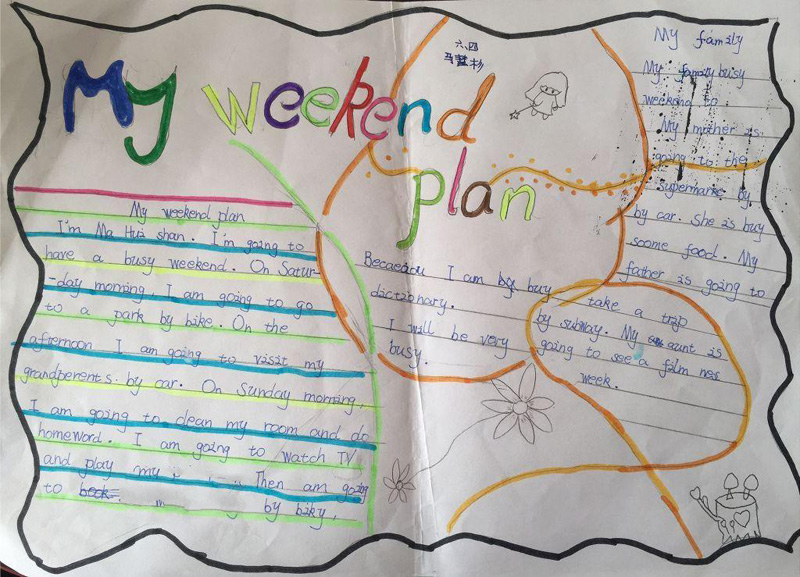 My weekend
plan
六、四
马慧杉
My weekend plan
I'm Ma Hui shan. I'm going to
have a busy weekend. On Satur-
-day morning, I am going to go
to a park by bike. On the
afternoon I am going to visit my
grandperents by car. On Sunday morning,
I am going to clean my room and do
homeword. I am going to watch TV
and play my Then am going
to by biky,
I am by buy
dictionary.
I will be very
busy.
My family
My family busy
weekend to.
My mother is
going to the
supermarke by
by car. She is buy
soome food. My
father is going to
take a trip
by subway. My aunt is
going to see a film nex
week.